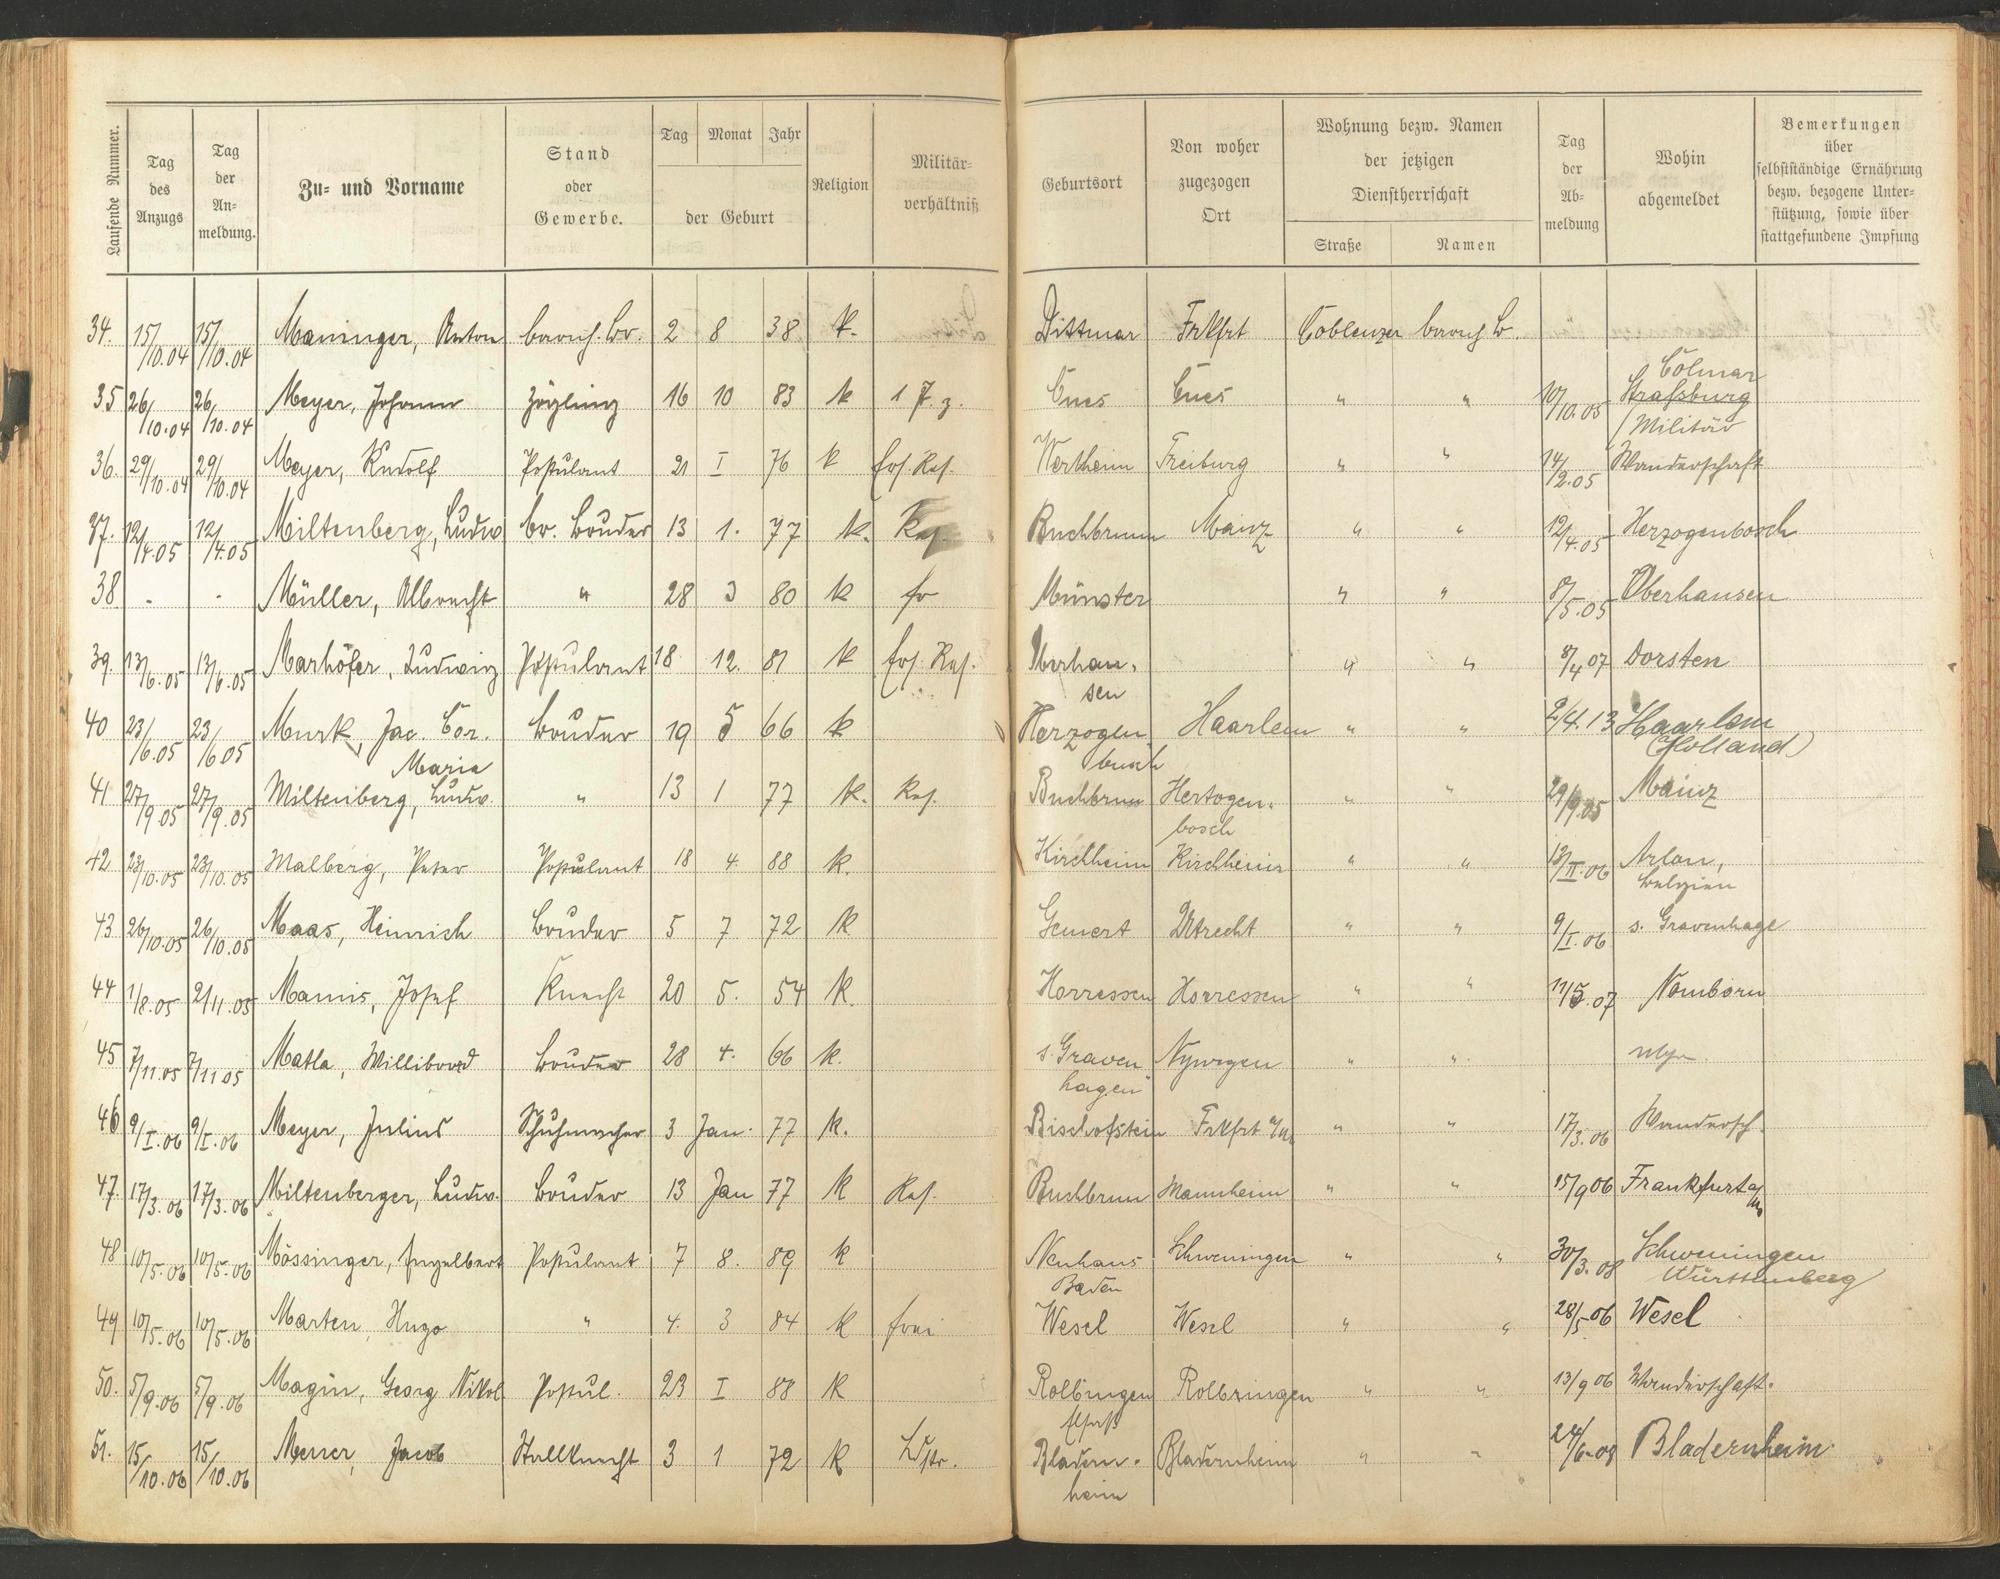 Laufende Nummer.
Tag des Anzugs
Tag der Anmeldung.
Zu- und Vorname
Stand oder Gewerbe.
Tag Monat Jahr
der Geburt
Religion
Militär-verhältniß
Geburtsort
Von woher zugezogen Ort
Wohnung bezw. Namen der jetzigen Dienstherrschaft
Straße Namen
Tag der Ab-meldung
Wohin abgemeldet
Bemerkungen über selbstständige Ernährung bezw. bezogene Unter-stützung, sowie über stattgefundene Impfung
34. 15/10.04 15/10.04 Maninger, Anton barmh. Br. 2 8 38 k. Dittmar Frkfrt Coblenzer barmh B.
35 26/10.04 26/10.04 Meyer, Johann Zögling 16 10 83 k 1 J. z. Cues Cues " " 10/10.05 Colmar Straßburg / Militär
36. 29/10.04 29/10.04 Meyer, Rudolf Postulant 21 I 76 k Ers. Res. Wertheim Freiburg " " 14/2.05 Wanderschaft
37. 12/4.05 12/4.05 Miltenberg, Ludw br. Bruder 13 1. 77 k. Res. Buchbrunn Mainz " " 12/4.05 Herzogenbosch
38 - - Müller, Albrecht " 28 3 80 k fr Münster " " 8/5.05 Oberhausen
39. 13/6.05 13/6.05 Marhöfer, Ludwig Postulant 18 12. 81 k Ers. Res. Oberhau-sen " " 8/4 07 Dorsten
40 23/6.05 23/6 05 Murk, Jac. Cor. Maria Bruder 19 5 66 k Herzogenbusch Haarlem " " 2/4.13 Haarlem (Holland)
41 27/9 05 27/9.05 Miltenberg, Ludw. " 13 1 77 k. Res. Buchbrunn Hertogen-bosch " " 29/9.05 Mainz
42. 23/10.05 23/10.05 Malberg, Peter Postulant 18 4. 88 k. Kirchheim Kirchheim " " 13/II.06 Arlon, Belgien
43. 26/10.05 26/10.05 Maas, Heinrich Bruder 5 7 72 k Gemert Utrecht " " 9/I.06 s. Gravenhage
44 1/8.05 2/11.05 Mamis, Josef Knecht 20 5. 54 k. Horressen Horressen " " 11/5.07 Nomborn
45 7/11.05 7/11 05 Matla, Willibord Bruder 28 4. 66 k. s. Gravenhagen Nymegen " "
46 9/I.06 9/I.06 Meyer, Julius Schuhmacher 3 Jan. 77 k. Bischofstein Frkfrt a/M " " 17/3.06 Wandersch.
47. 17/3.06 17/3.06 Miltenberger, Ludw. Bruder 13 Jan 77 k Res. Buchbrunn Mannheim " " 15/9 06 Frankfurt a/M
48 10/5.06 10/5.06 Mössinger, Engelbert Postulant 7 8. 89 k Neuhaus Baden Schweningen " " 30/3.08 Schweningen Württemberg
49 10/5.06 10/5.06 Marten, Hugo " 4. 3 84 k frei Wesel Wesel " " 28/5 06 Wesel
50. 5/9.06 5/9.06 Magin, Georg Nikol Postul. 23 I 88 k Rolbingen Elsaß Rolbringen " " 13/9 06 Wanderschaft.
51. 15/10.06 15/10.06 Jacob Stallknecht 3 1 72 k Ldstr. Bladern-heim Bladernheim " " 24/6.08 Bladernheim